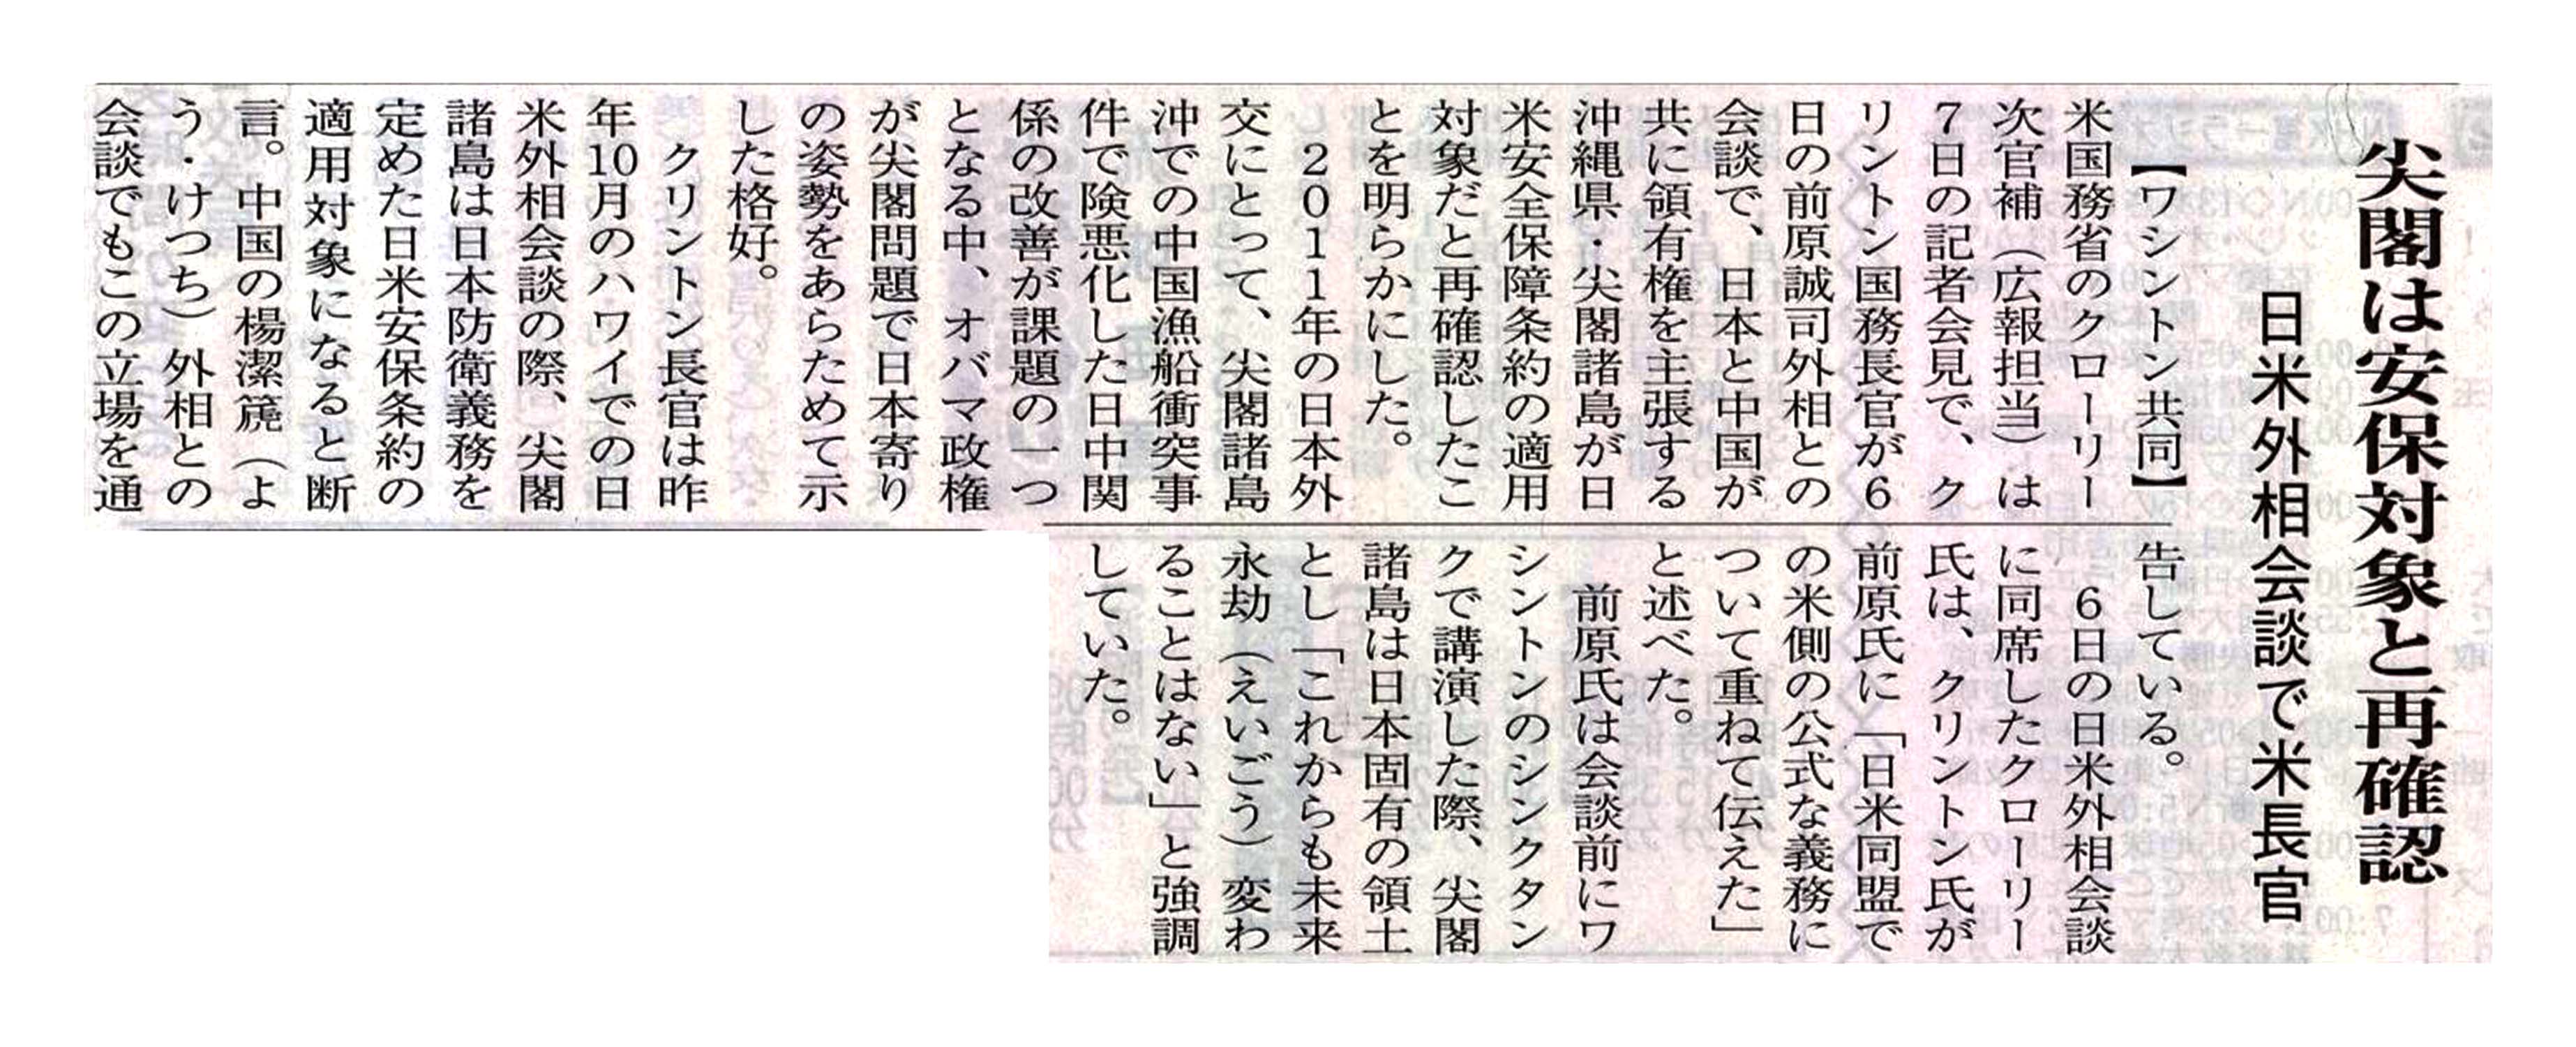 尖閣は安保対象と再確認
日米外相会談で米長官
【ワシントン共同】
米国務省のクローリー
次官補（広報担当）は
７日の記者会見で、ク
リントン国務長官が６
日の前原誠司外相との
会談で、日本と中国が
共に領有権を主張する
沖縄県・尖閣諸島が日
米安全保障条約の適用
対象だと再確認したこ
とを明らかにした。
２０１１年の日本外
交にとって、尖閣諸島
沖での中国漁船衝突事
件で険悪化した日中関
係の改善が課題の一つ
となる中、オバマ政権
が尖閣問題で日本寄り
の姿勢をあらためて示
した格好。
クリントン長官は昨
年10月のハワイでの日
米外相会談の際、尖閣
諸島は日本防衛義務を
定めた日米安保条約の
適用対象になると断
言。中国の楊潔篪（よ
う・けつち）外相との
会談でもこの立場を通
告している。
６日の日米外相会談
に同席したクローリー
氏は、クリントン氏が
前原氏に「日米同盟で
の米側の公式な義務に
ついて重ねて伝えた」
と述べた。
前原氏は会談前にワ
シントンのシンクタン
クで講演した際、尖閣
諸島は日本固有の領土
とし「これからも未来
永劫（えいごう）変わ
ることはない」と強調
していた。